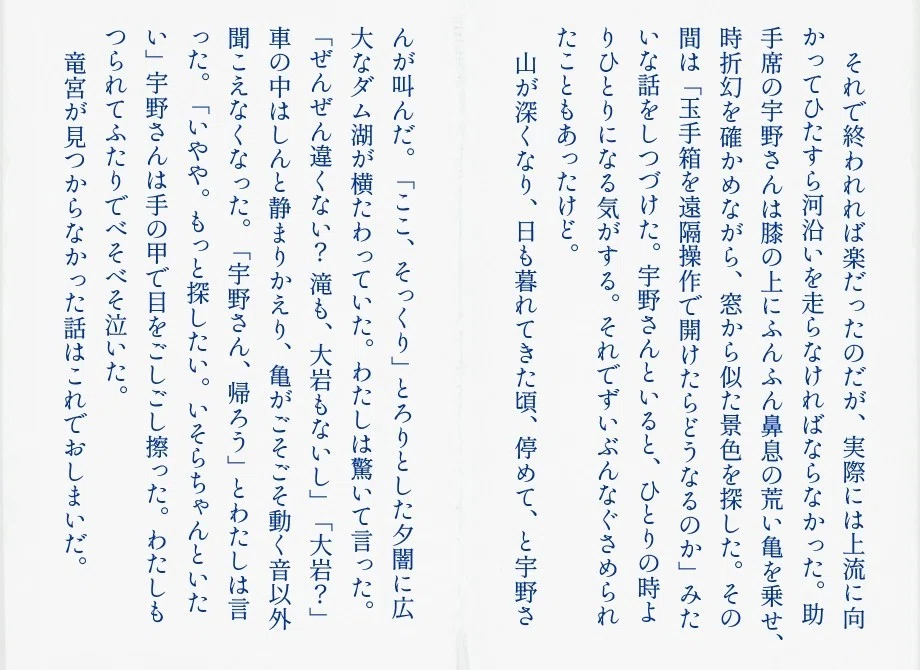 それで終われれば楽だったのだが、実際には上流に向
かってひたすら河沿いを走らなければならなかった。助
手席の宇野さんは膝の上にふんふん鼻息の荒い亀を乗せ、
時折幻を確かめながら、窓から似た景色を探した。その
間は「玉手箱を遠隔操作で開けたらどうなるのか」みた
いな話をしつづけた。宇野さんといると、ひとりの時よ
りひとりになる気がする。それでずいぶんなぐさめられ
たこともあったけど。
山が深くなり、日も暮れてきた頃、停めて、と宇野さ
んが叫んだ。「ここ、そっくり」とろりとした夕闇に広
大なダム湖が横たわっていた。わたしは驚いて言った。
「ぜんぜん違くない？滝も、大岩もないし」「大岩？」
車の中はしんと静まりかえり、亀がごそごそ動く音以外
聞こえなくなった。「宇野さん、帰ろう」とわたしは言
った。「いやや。もっと探したい。いそらちゃんといた
い」宇野さんは手の甲で目をごしごし擦った。わたしも
つられてふたりでべそべそ泣いた。
竜宮が見つからなかった話はこれでおしまいだ。